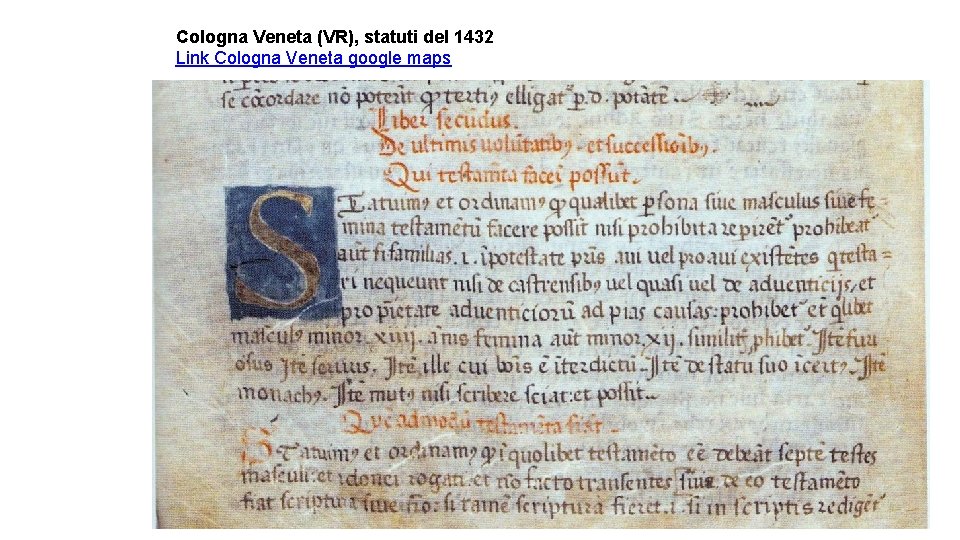 Cologna Veneta (VR), statuti del 1432
Link Cologna Veneta google maps
se cōcordare nō poterīt ꝙ tertiꝰ elligat᷑ ꝑ.d. potātē
Liber secūdus.
De ultimis uolūtatibꝰ et successioībꝰ.
Qui testam̄ta facē possūt.
Statuimꝰ et ordinamꝰ ꝙ qualibet ꝑsona siue masculus siue fe =
mina testamētū facere possit nisi prohibita reperiret᷑ prohibeat᷑
aūt fi familias .i. ī potestate pr̄is aui uel proaui existētes q testa =
ri nequeunt nisi de castrensibꝰ uel quasi uel de aduenticijs, et
pro p̄ietate aduenticiorū ad pias causas: prohibet᷑ et q̄libet
masculꝰ minor xiiij. ānis femina aūt minor xij. similit᷑ ꝓhibet᷑. Itē furi
osus Itē seruus. Itē ille cui bōis ē īterdictū. Itē de statu suo īcertꝰ. Itē
monachꝰ. Itē mutꝰ nisi scribere sciat: et possit.
Que admodū testam̄ta fiāt.
Statuimꝰ et ordinamꝰ ꝙ ī quolibet testamēto eē debeāt septē testes
masculi: et idonei rogati: et nō facto transeuntes siue de eo testamēto
fiat scriptura siue nō: si tamē scriptura fieret .i. si in scriptis redigēt᷑